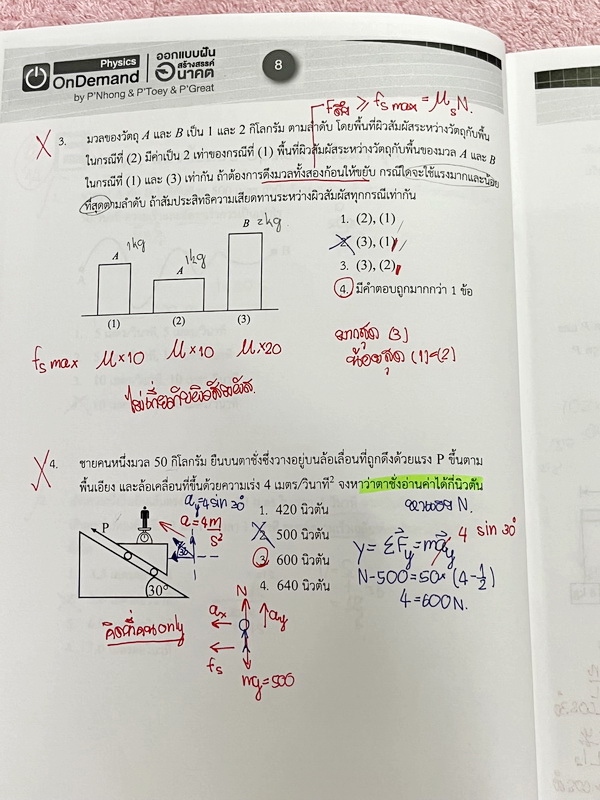 Physics
OnDemand
by P'Nhong & P'Toey & P'Great
ออกแบบฝัน
สร้างสรรค์
อนาคต
8
Fดึง ≥ fs max = μsN.
3. มวลของวัตถุ A และ B เป็น 1 และ 2 กิโลกรัม ตามลำดับ โดยพื้นที่ผิวสัมผัสระหว่างวัตถุกับพื้น
ในกรณีที่ (2) มีค่าเป็น 2 เท่าของกรณีที่ (1) พื้นที่ผิวสัมผัสระหว่างวัตถุกับพื้นของมวล A และ B
ในกรณีที่ (1) และ (3) เท่ากัน ถ้าต้องการดึงมวลทั้งสองก้อนให้ขยับ กรณีใดจะใช้แรงมากและน้อย
ที่สุดตามลำดับ ถ้าสัมประสิทธิความเสียดทานระหว่างผิวสัมผัสทุกกรณีเท่ากัน
1. (2), (1)
2. (3), (1)
3. (3), (2)
4. มีคำตอบถูกมากกว่า 1 ข้อ
A 1kg
A 1kg
B 2kg
(1) (2) (3)
fs max μ×10 μ×10 μ×20
ไม่เกี่ยวกับผิวสัมผัส.
มากสุด (3)
น้อยสุด (1)=(2)
4. ชายคนหนึ่งมวล 50 กิโลกรัม ยืนบนตาชั่งซึ่งวางอยู่บนล้อเลื่อนที่ถูกดึงด้วยแรง P ขึ้นตาม
พื้นเอียง และล้อเคลื่อนที่ขึ้นด้วยความเร่ง 4 เมตร/วินาที² จงหาว่าตาชั่งอ่านค่าได้กี่นิวตัน
1. 420 นิวตัน
2. 500 นิวตัน
3. 600 นิวตัน
4. 640 นิวตัน
ay=4sin30°
a=4m/s²
P
30°
30°
N.
4 sin 30°
y = ΣFy = may
N-500=50×(4·1/2)
4=600N.
คิดที่คนonly
N
ax
ay
fs
mg=500